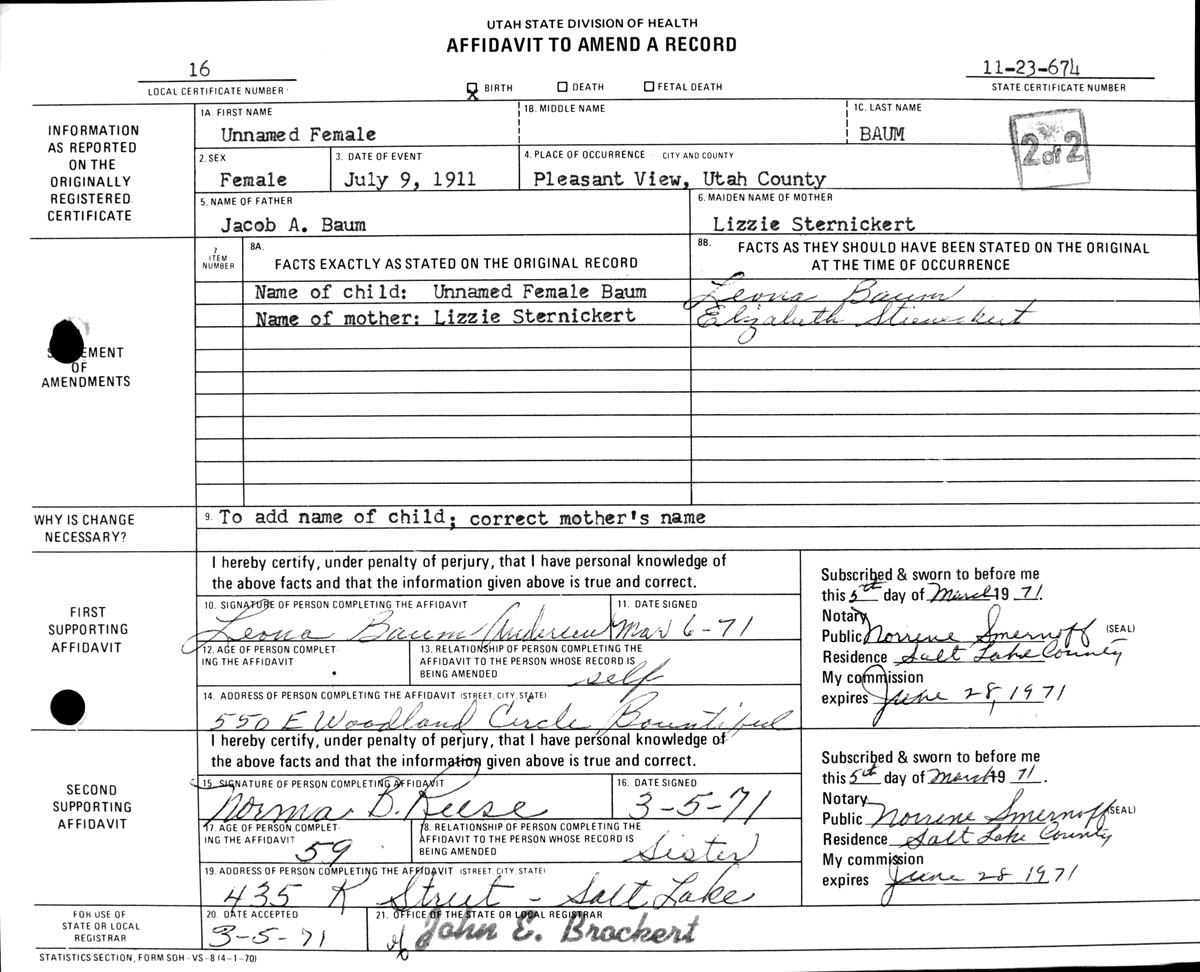 UTAH STATE DIVISION OF HEALTH
AFFIDAVIT TO AMEND A RECORD
16
LOCAL CERTIFICATE NUMBER
BIRTH DEATH FETAL DEATH
11-23-674
STATE CERTIFICATE NUMBER
INFORMATION AS REPORTED ON THE ORIGINALLY REGISTERED CERTIFICATE
1A. FIRST NAME 1B. MIDDLE NAME 1C. LAST NAME
Unnamed Female BAUM
2 of 2
2. SEX 3. DATE OF EVENT 4. PLACE OF OCCURRENCE - CITY AND COUNTY
Female July 9, 1911 Pleasant View, Utah County
5. NAME OF FATHER 6. MAIDEN NAME OF MOTHER
Jacob A. Baum Lizzie Sternickert
7 ITEM NUMBER
8A. FACTS EXACTLY AS STATED ON THE ORIGINAL RECORD
8B. FACTS AS THEY SHOULD HAVE BEEN STATED ON THE ORIGINAL AT THE TIME OF OCCURRENCE
Name of child: Unnamed Female Baum Leona Baum
Name of mother: Lizzie Sternickert Elizabeth
EMENT OF AMENDMENTS
WHY IS CHANGE NECESSARY?
9. To add name of child; correct mother's name
FIRST SUPPORTING AFFIDAVIT
I hereby certify, under penalty of perjury, that I have personal knowledge of
the above facts and that the information given above is true and correct.
10. SIGNATURE OF PERSON COMPLETING THE AFFIDAVIT 11. DATE SIGNED
Leona Baum Andersen Mar 6-71
12. AGE OF PERSON COMPLETING THE AFFIDAVIT
13. RELATIONSHIP OF PERSON COMPLETING THE AFFIDAVIT TO THE PERSON WHOSE RECORD IS BEING AMENDED
self
14. ADDRESS OF PERSON COMPLETING THE AFFIDAVIT (STREET, CITY, STATE)
550 E Woodland Circle Bountiful
Subscribed & sworn to before me
this 5th day of March 19 71.
Notary
Public Norrene Smernoff (SEAL)
Residence Salt Lake County
My commission
expires June 28, 1971
SECOND SUPPORTING AFFIDAVIT
I hereby certify, under penalty of perjury, that I have personal knowledge of
the above facts and that the information given above is true and correct.
15. SIGNATURE OF PERSON COMPLETING AFFIDAVIT 16. DATE SIGNED
Norma B. Reese 3-5-71
17. AGE OF PERSON COMPLETING THE AFFIDAVIT
59
18. RELATIONSHIP OF PERSON COMPLETING THE AFFIDAVIT TO THE PERSON WHOSE RECORD IS BEING AMENDED
Sister
19. ADDRESS OF PERSON COMPLETING THE AFFIDAVIT (STREET, CITY, STATE)
435 K Street - Salt Lake
Subscribed & sworn to before me
this 5th day of March 19 71.
Notary
Public Norrene Smernoff (SEAL)
Residence Salt Lake County
My commission
expires June 28 1971
FOR USE OF STATE OR LOCAL REGISTRAR
20. DATE ACCEPTED 21. OFFICE OF THE STATE OR LOCAL REGISTRAR
3-5-71 John E. Brockert
STATISTICS SECTION, FORM SDH-VS-8 (4-1-70)